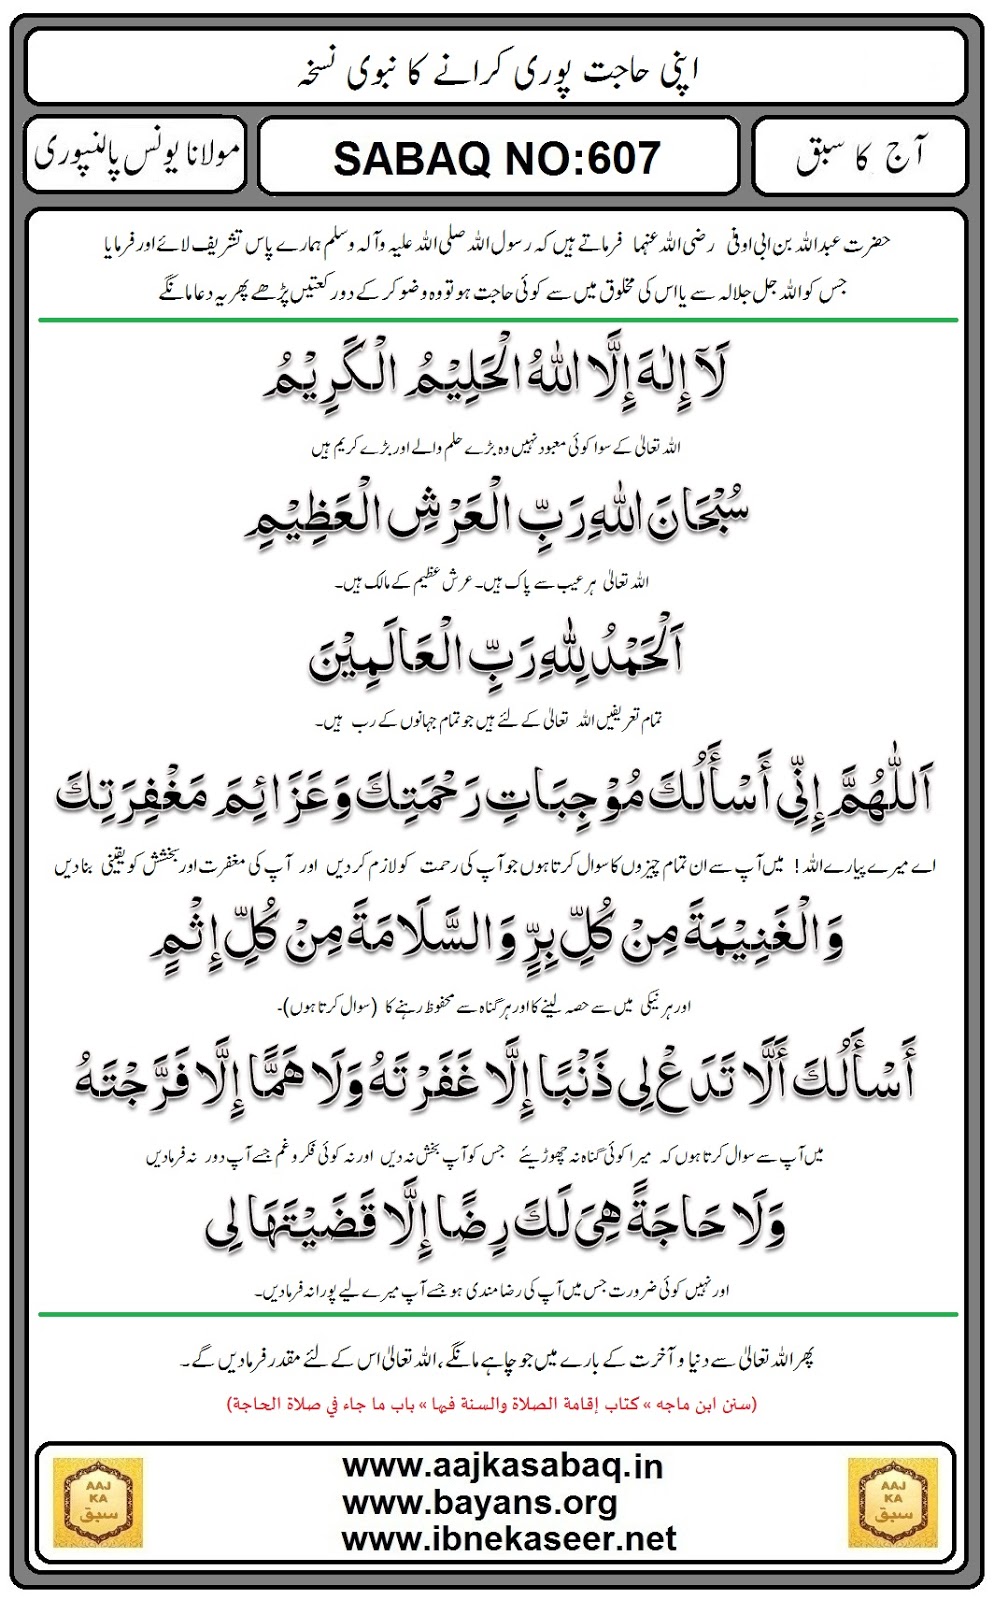 اپنی حاجت پوری کرانے کا نبوی نسخہ
آج کا سبق
SABAQ NO:607
مولانا یونس پالنپوری
حضرت عبداللہ بن ابی اوفی رضی اللہ عنہما فرماتے ہیں کہ رسول اللہ صلی اللہ علیہ وآلہ وسلم ہمارے پاس تشریف لائے اور فرمایا
جس کو اللہ جل جلالہ سے یا اس کی مخلوق میں سے کوئی حاجت ہو تو وہ وضو کر کے دو رکعتیں پڑھے پھر یہ دعا مانگے
لَآ إِلٰهَ إِلَّا اللهُ الْحَلِيْمُ الْكَرِيْمُ
اللہ تعالیٰ کے سوا کوئی معبود نہیں وہ بڑے حلم والے اور بڑے کریم ہیں
سُبْحَانَ اللهِ رَبِّ الْعَرْشِ الْعَظِيْمِ
اللہ تعالیٰ ہر عیب سے پاک ہیں۔ عرش عظیم کے مالک ہیں۔
اَلْحَمْدُ لِلّٰهِ رَبِّ الْعَالَمِيْنَ
تمام تعریفیں اللہ تعالیٰ کے لئے ہیں جو تمام جہانوں کے رب ہیں۔
اَللّٰهُمَّ إِنِّي أَسْأَلُكَ مُوْجِبَاتِ رَحْمَتِكَ وَعَزَائِمَ مَغْفِرَتِكَ
اے میرے پیارے اللہ! میں آپ سے ان تمام چیزوں کا سوال کرتا ہوں جو آپ کی رحمت کو لازم کردیں اور آپ کی مغفرت اور بخشش کو یقینی بنا دیں
وَالْغَنِيْمَةَ مِنْ كُلِّ بِرٍّ وَالسَّلَامَةَ مِنْ كُلِّ إِثْمٍ
اور ہر نیکی میں سے حصہ لینے کا اور ہر گناہ سے محفوظ رہنے کا (سوال کرتا ہوں)۔
أَسْأَلُكَ أَلَّا تَدَعْ لِي ذَنْبًا إِلَّا غَفَرْتَهُ وَلَا هَمًّا إِلَّا فَرَّجْتَهُ
میں آپ سے سوال کرتا ہوں کہ میرا کوئی گناہ نہ چھوڑیئے جس کو آپ بخش نہ دیں اور نہ کوئی فکر و غم جسے آپ دور نہ فرمادیں
وَلَا حَاجَةً هِيَ لَكَ رِضًا إِلَّا قَضَيْتَهَا لِي
اور نہیں کوئی ضرورت جس میں آپ کی رضامندی ہو جسے آپ میرے لیے پورا نہ فرمادیں۔
پھر اللہ تعالیٰ سے دنیا و آخرت کے بارے میں جو چاہے مانگے، اللہ تعالیٰ اس کے لئے مقدر فرمادیں گے۔
(سنن ابن ماجه » كتاب إقامة الصلاة والسنة فيها » باب ما جاء في صلاة الحاجة)
AAJ
KA
سبق
www.aajkasabaq.in
www.bayans.org
www.ibnekaseer.net
AAJ
KA
سبق